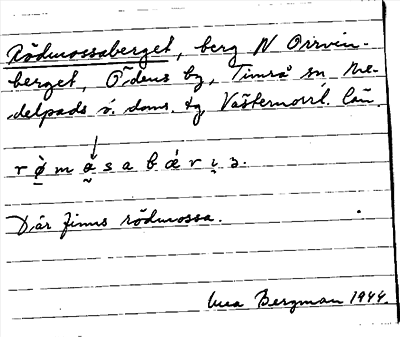 Rödmossaberget, berg N Orrvin-
berget, Ödens by, Timrå sn Me-
delpads ö. doms. tg Västernorrl. län.
r ø̀ m å s a b ǽ r ɩ ʒ.
Där finns rödmossa.
Bergman 1944.